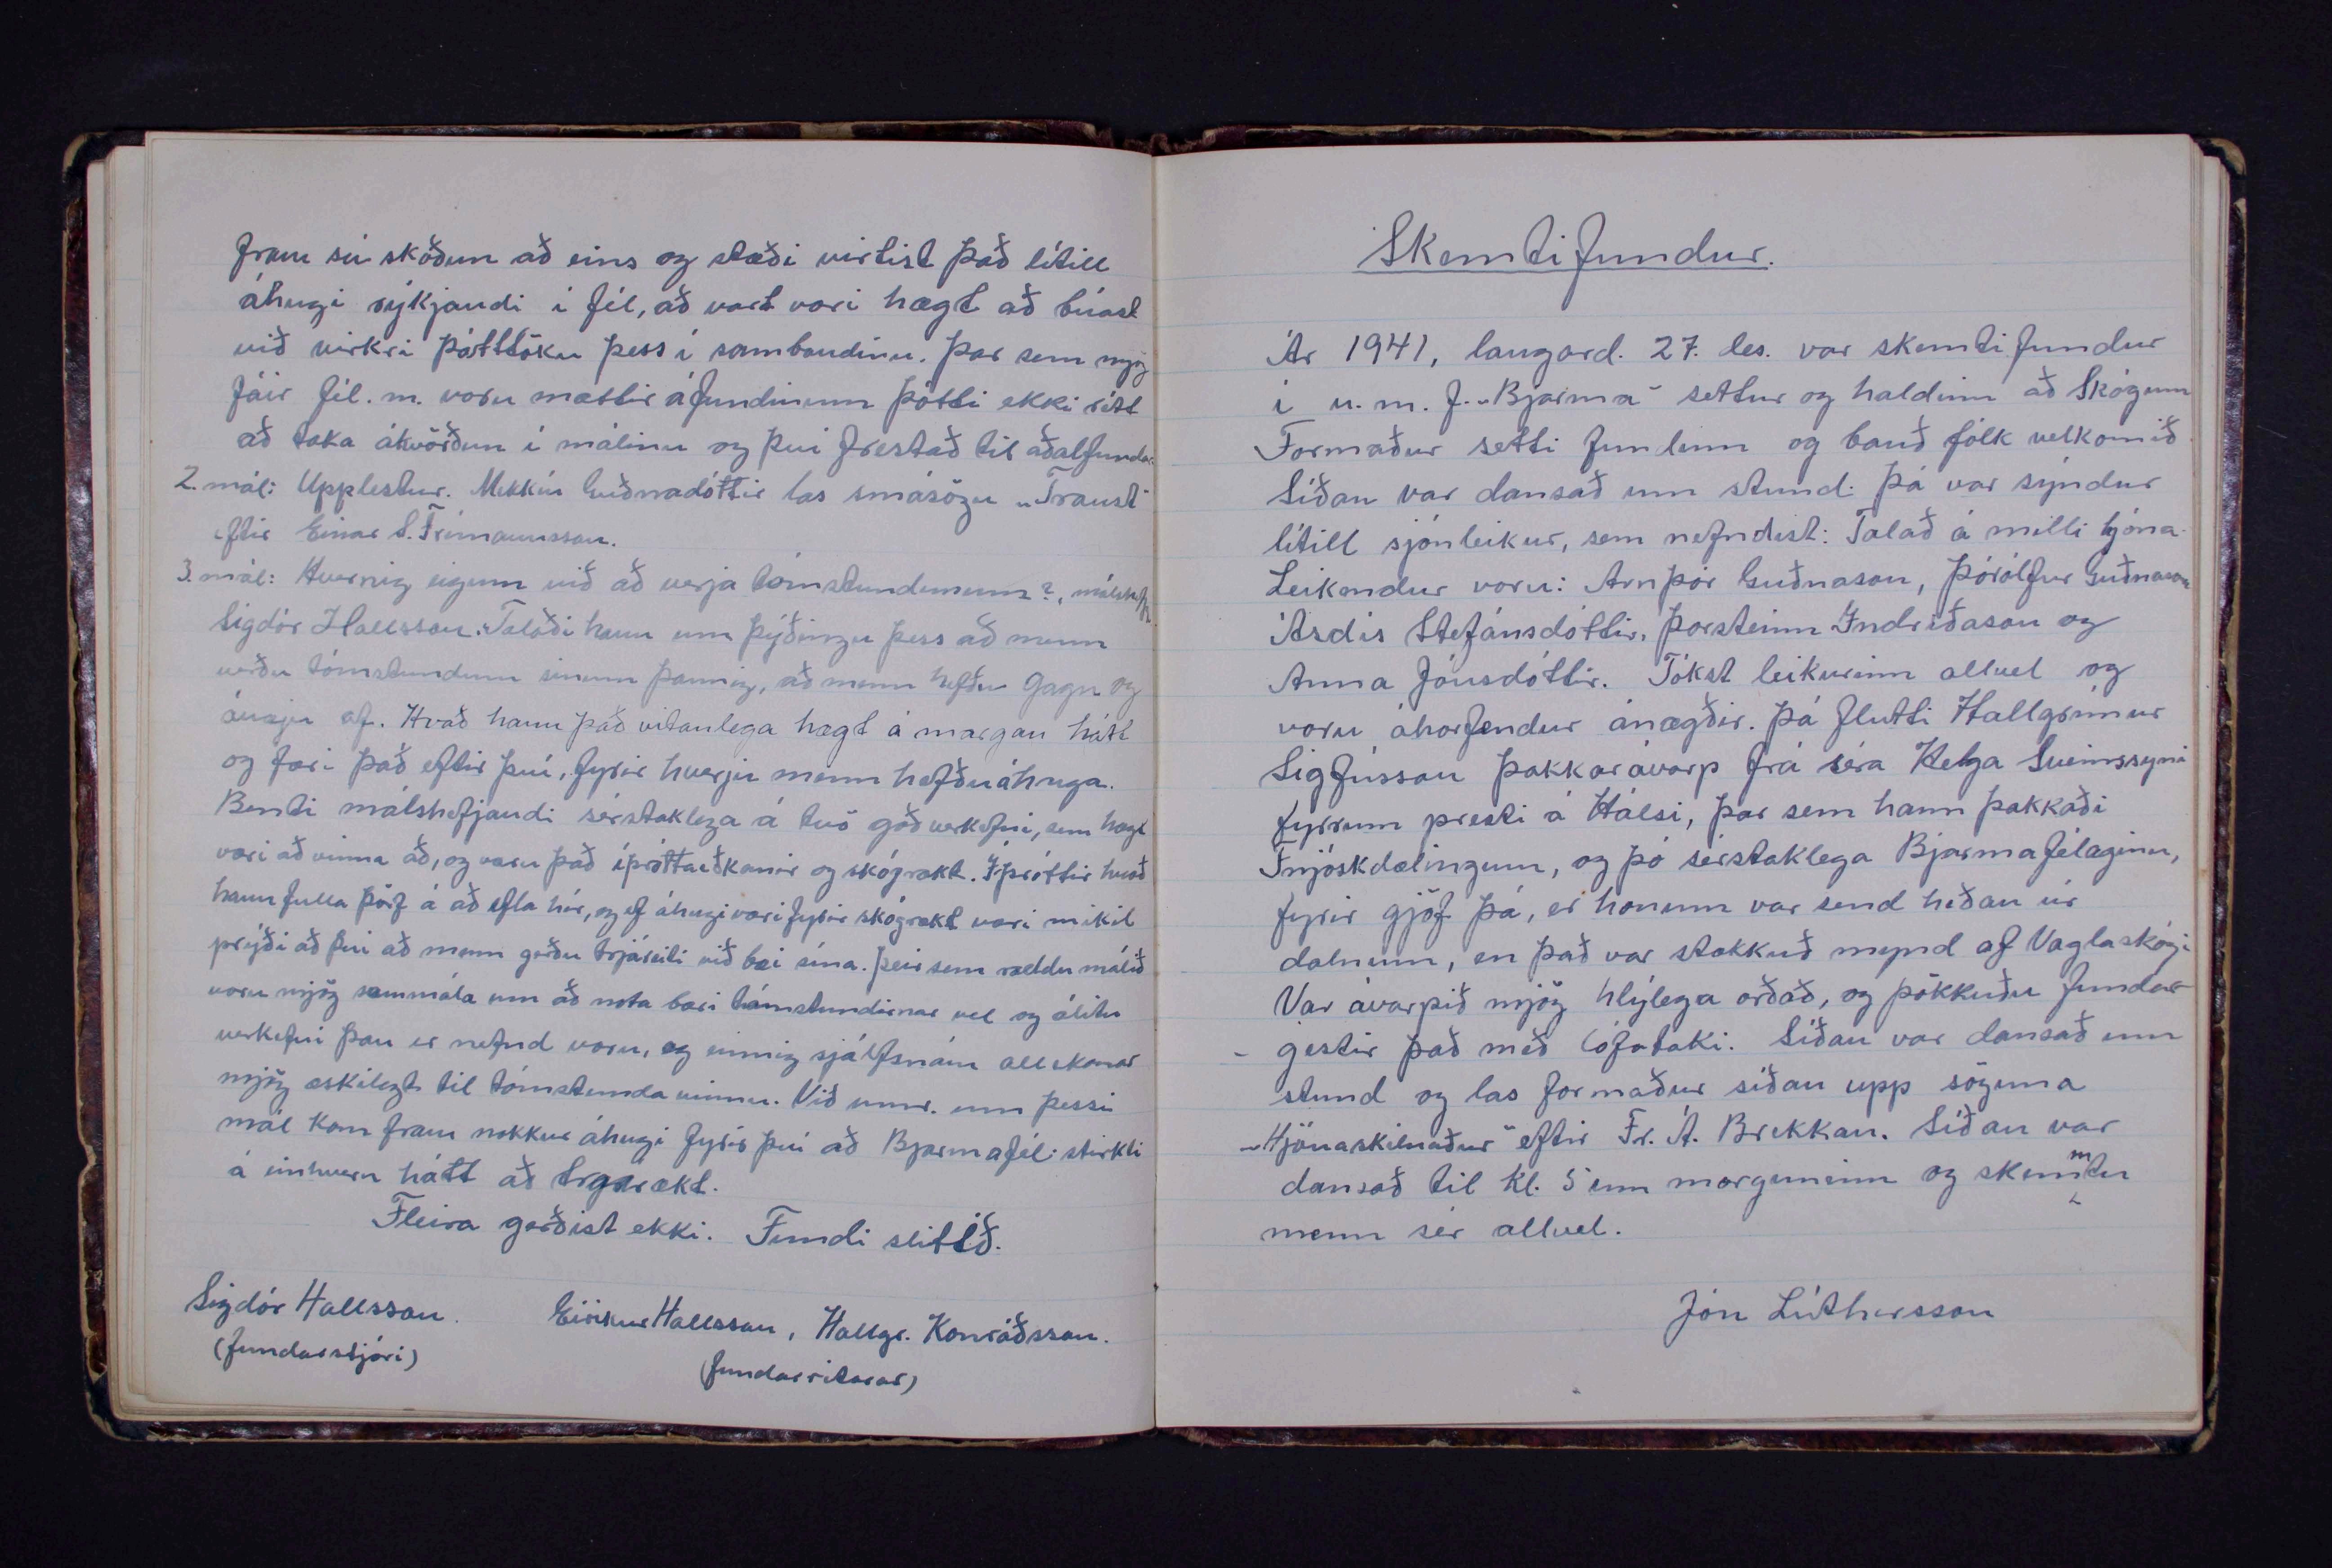 fram sú skoðun að eins og stæði virtist það lítill
áhugi ríkjandi í fél, að vart væri hægt að búast
við virkri þátttöku þess í sambandinu. Þar sem mjög
fáir fél. m. voru mættir á fundinum þótti ekki rétt
að taka ákvörðun í málinu og því frestað til aðalfundar
2. mál: Upplestur. Mekkín Guðnadóttir las smásögu „Traust"
eftir Einar S. Frímannsson.
3. mál: Hvernig eigum við að verja tómstundunum?, málshefj.
Sigdór Hallsson. Talaði hann um þýðingu þess að menn
verðu tómstundum sínum þannig, að menn hefðu gagn og
ánægju af. Kvað hann það vitanlega hægt á margan hátt
og færi það eftir því, fyrir hverju menn hefðu áhuga.
Benti málshefjandi sérstaklega á tvö góð verkefni, sem hægt
væri að vinna að, og væru það íþróttaiðkanir og skógrækt. Íþróttir kvað
hann fulla þörf á að efla hér, og ef áhugi væri fyrir skógrækt væri mikil
prýði að því að menn gerðu trjáreiti við bæi sína. Þeir sem ræddu málið
voru mjög sammála um að nota bæri tómstundirnar vel og álitu
verkefni þau er nefnd voru, og einnig sjálfsnám allskonar
mjög æskilegt til tómstunda vinnu. Við umr. um þessi
mál kom fram nokkur áhugi fyrir því að Bjarmafél. stirkti
á einhvern hátt að trjárækt.
Fleira gerðist ekki. Fundi slitið.
Sigdór Hallsson. Eiríkur Hallsson, Hallgr. Konráðsson.
(fundarstjóri)
(fundarritarar)
Skemtifundur.
Ár 1941, laugard. 27. des. var skemtifundur
í u. m. f. „Bjarma" settur og haldinn að Skógum
Formaður setti fundinn og bauð fólk velkomið
Síðan var dansað um stund. Þá var sýndur
lítill sjónleikur, sem nefndist: Talað á milli hjóna.
Leikendur voru: Arnþór Guðnason, Þórólfur Guðnason
Ásdís Stefánsdóttir, Þorsteinn Indriðason og
Anna Jónsdóttir. Tókst leikurinn allvel og
voru áhorfendur ánægðir. Þá flutti Hallgrímur
Sigfússon þakkarávarp frá séra Helga Sveinssyni
fyrrum presti á Hálsi, þar sem hann þakkaði
Fnjóskdælingum, og þó sérstaklega Bjarmafélaginu,
fyrir gjöf þá, er honum var send héðan úr
dalnum, en það var stækkuð mynd af Vaglaskógi
Var ávarpið mjög hlýlega orðað, og þökkuðu fundar-
- gestir það með lófataki. Síðan var dansað um
stund og las formaður síðan upp söguna
„Hjónaskilnaður" eftir Fr. Á. Brekkan. Síðan var
dansað til kl. 5 um morguninn og skemmtu
menn sér allvel.
Jón Lúthersson